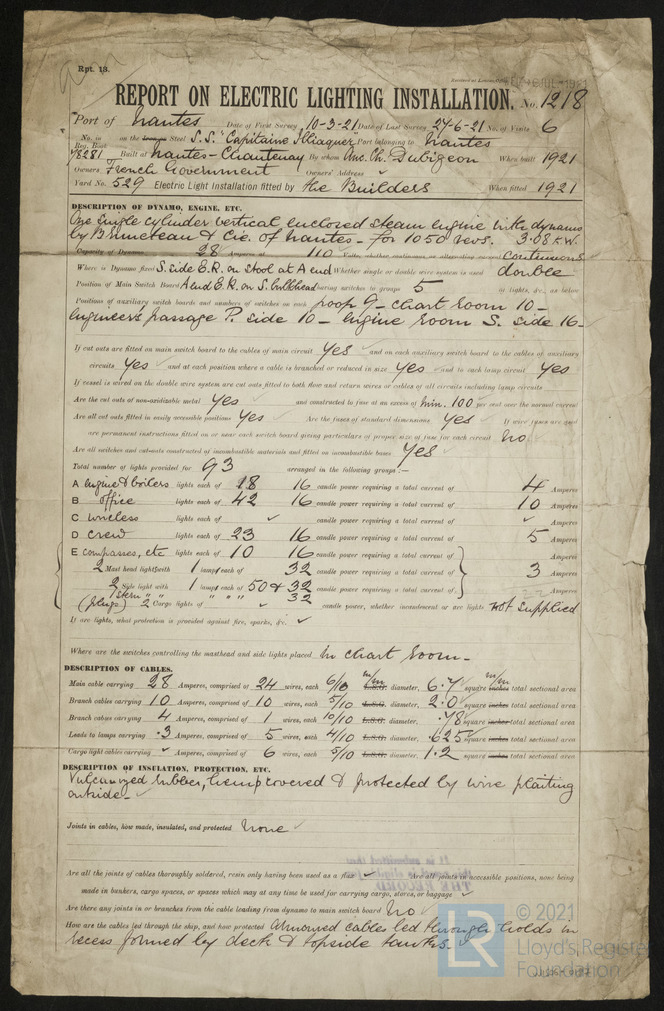 Rpt. 13.
REPORT ON ELECTRIC LIGHTING INSTALLATION. No. 1218
Port of Nantes Date of First Survey 10-3-21 Date of Last Survey 27-6-21 No. of Visits 6
No. in Reg. Book on the Steel S.S. "Capitaine Illiaquer" Port belonging to Nantes
78281 Built at Nantes-Chantenay By whom Anc. Ch. Dubigeon When built 1921
Owners French Government Owners' Address ✓
Yard No. 529 Electric Light Installation fitted by the Builders When fitted 1921
DESCRIPTION OF DYNAMO, ENGINE, ETC.
One single cylinder vertical enclosed steam engine with dynamo
by Bruneteau & Cie. of Nantes - for 1050 revs. 3.08 K.W.
Capacity of Dynamo 28 Amperes at 110 Volts, whether continuous or alternating current continuous
Where is Dynamo fixed S. side E.R. on stool at A end Whether single or double wire system is used double
Position of Main Switch Board A end E.R. on S. bulkhead having switches to groups 5 of lights, &c., as below
Positions of auxiliary switch boards and numbers of switches on each poop 9 - chart room 10 -
engineers passage P. side 10 - engine room S. side 16 -
If cut outs are fitted on main switch board to the cables of main circuit yes and on each auxiliary switch board to the cables of auxiliary
circuits yes and at each position where a cable is branched or reduced in size yes and to each lamp circuit yes
If vessel is wired on the double wire system are cut outs fitted to both flow and return wires or cables of all circuits including lamp circuits
Are the cut outs of non-oxidizable metal yes and constructed to fuse at an excess of min. 100 per cent over the normal current
Are all cut outs fitted in easily accessible positions yes Are the fuses of standard dimensions yes If wire fuses are used
are permanent instructions fitted on or near each switch board giving particulars of proper size of fuse for each circuit no
Are all switches and cut-outs constructed of incombustible materials and fitted on incombustible bases yes
Total number of lights provided for 93 arranged in the following groups :—
A engine & boilers lights each of 18 16 candle power requiring a total current of 4 Amperes
B office lights each of 42 16 candle power requiring a total current of 10 Amperes
C wireless lights each of ✓ candle power requiring a total current of ✓ Amperes
D crew lights each of 23 16 candle power requiring a total current of 5 Amperes
E compasses, etc lights each of 10 16 candle power requiring a total current of Amperes
2 Mast head light with 1 lamp each of 32 candle power requiring a total current of 3 Amperes
2 Side light with 1 lamp each of 50 & 32 candle power requiring a total current of Amperes
1 Stern " " " " " 32
(plugs) 2 Cargo lights of ✓ candle power, whether incandescent or arc lights not supplied
If arc lights, what protection is provided against fire, sparks, &c. ✓
Where are the switches controlling the masthead and side lights placed in chart room -
DESCRIPTION OF CABLES.
Main cable carrying 28 Amperes, comprised of 24 wires, each 6/10 m/m L.S.G. diameter, 6.7 square m/m inches total sectional area
Branch cables carrying 10 Amperes, comprised of 10 wires, each 5/10 L.S.G. diameter, 2.0 square inches total sectional area
Branch cables carrying 4 Amperes, comprised of 1 wires, each 10/10 L.S.G. diameter, .78 square inches total sectional area
Leads to lamps carrying .3 Amperes, comprised of 5 wires, each 4/10 L.S.G. diameter, .625 square inches total sectional area
Cargo light cables carrying ✓ Amperes, comprised of 6 wires, each 5/10 L.S.G. diameter, 1.2 square inches total sectional area
DESCRIPTION OF INSULATION, PROTECTION, ETC.
Vulcanized rubber, hemp covered & protected by wire plaiting
outside - ✓
Joints in cables, how made, insulated, and protected None ✓
Are all the joints of cables thoroughly soldered, resin only having been used as a flux ✓ Are all joints in accessible positions, none being
made in bunkers, cargo spaces, or spaces which may at any time be used for carrying cargo, stores, or baggage ✓
Are there any joints in or branches from the cable leading from dynamo to main switch board No
How are the cables led through the ship, and how protected Armoured cables led through holds in
recess formed by deck & topside tanks. ✓
LR © 2021
Lloyd's Register
Foundation